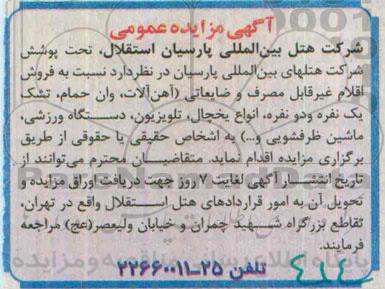 آگهی مزایده عمومی
شرکت هتل بین‌المللی پارسیان استقلال، تحت پوشش
شرکت هتلهای بین‌المللی پارسیان در نظردارد نسبت به فروش
اقلام غیرقابل مصرف و ضایعاتی (آهن‌آلات، وان حمام، تشک
یک نفره ودو نفره، انواع یخچال، تلویزیون، دستگاه ورزشی،
ماشین ظرفشویی و...) به اشخاص حقیقی یا حقوقی از طریق
برگزاری مزایده اقدام نماید. متقاضیان محترم می‌توانند از
تاریخ انتشار آگهی لغایت ۷ روز جهت دریافت اوراق مزایده و
تحویل آن به امور قراردادهای هتل استقلال واقع در تهران،
تقاطع بزرگراه شهید چمران و خیابان ولیعصر(عج) مراجعه
فرمایند.
تلفن ۲۵-۲۲۶۶۰۰۱۱